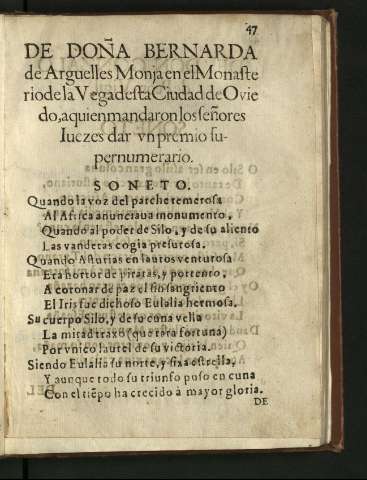 47
DE DOÑA BERNARDA
de Arguelles Monja en el Monaste
rio de la Vega desta Ciudad de Ovie
do, a quien mandaron los señores
Iuezes dar vn premio su-
pernumerario.
SONETO.
Quando la voz del parche temerosa
Al Africa anunciaua monumento,
Quando al poder de Silo, y de su aliento
Las vanderas cogia presurosa.
Quando Asturias en lauros venturosa
Era horror de piratas, y portento,
A coronar de paz el fin sangriento
El Iris fue dichoso Eulalia hermosa.
Su cuerpo Silo, y de su cuna vella
La mitad traxo (que rara fortuna)
Por vnico laurel de su victoria.
Siendo Eulalia su norte, y fixa estrella,
Y aunque todo su triunfo puso en cuna
Con el tiẽpo ha crecido à mayor gloria.
DE